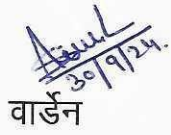 30/9/24.
वार्डेन